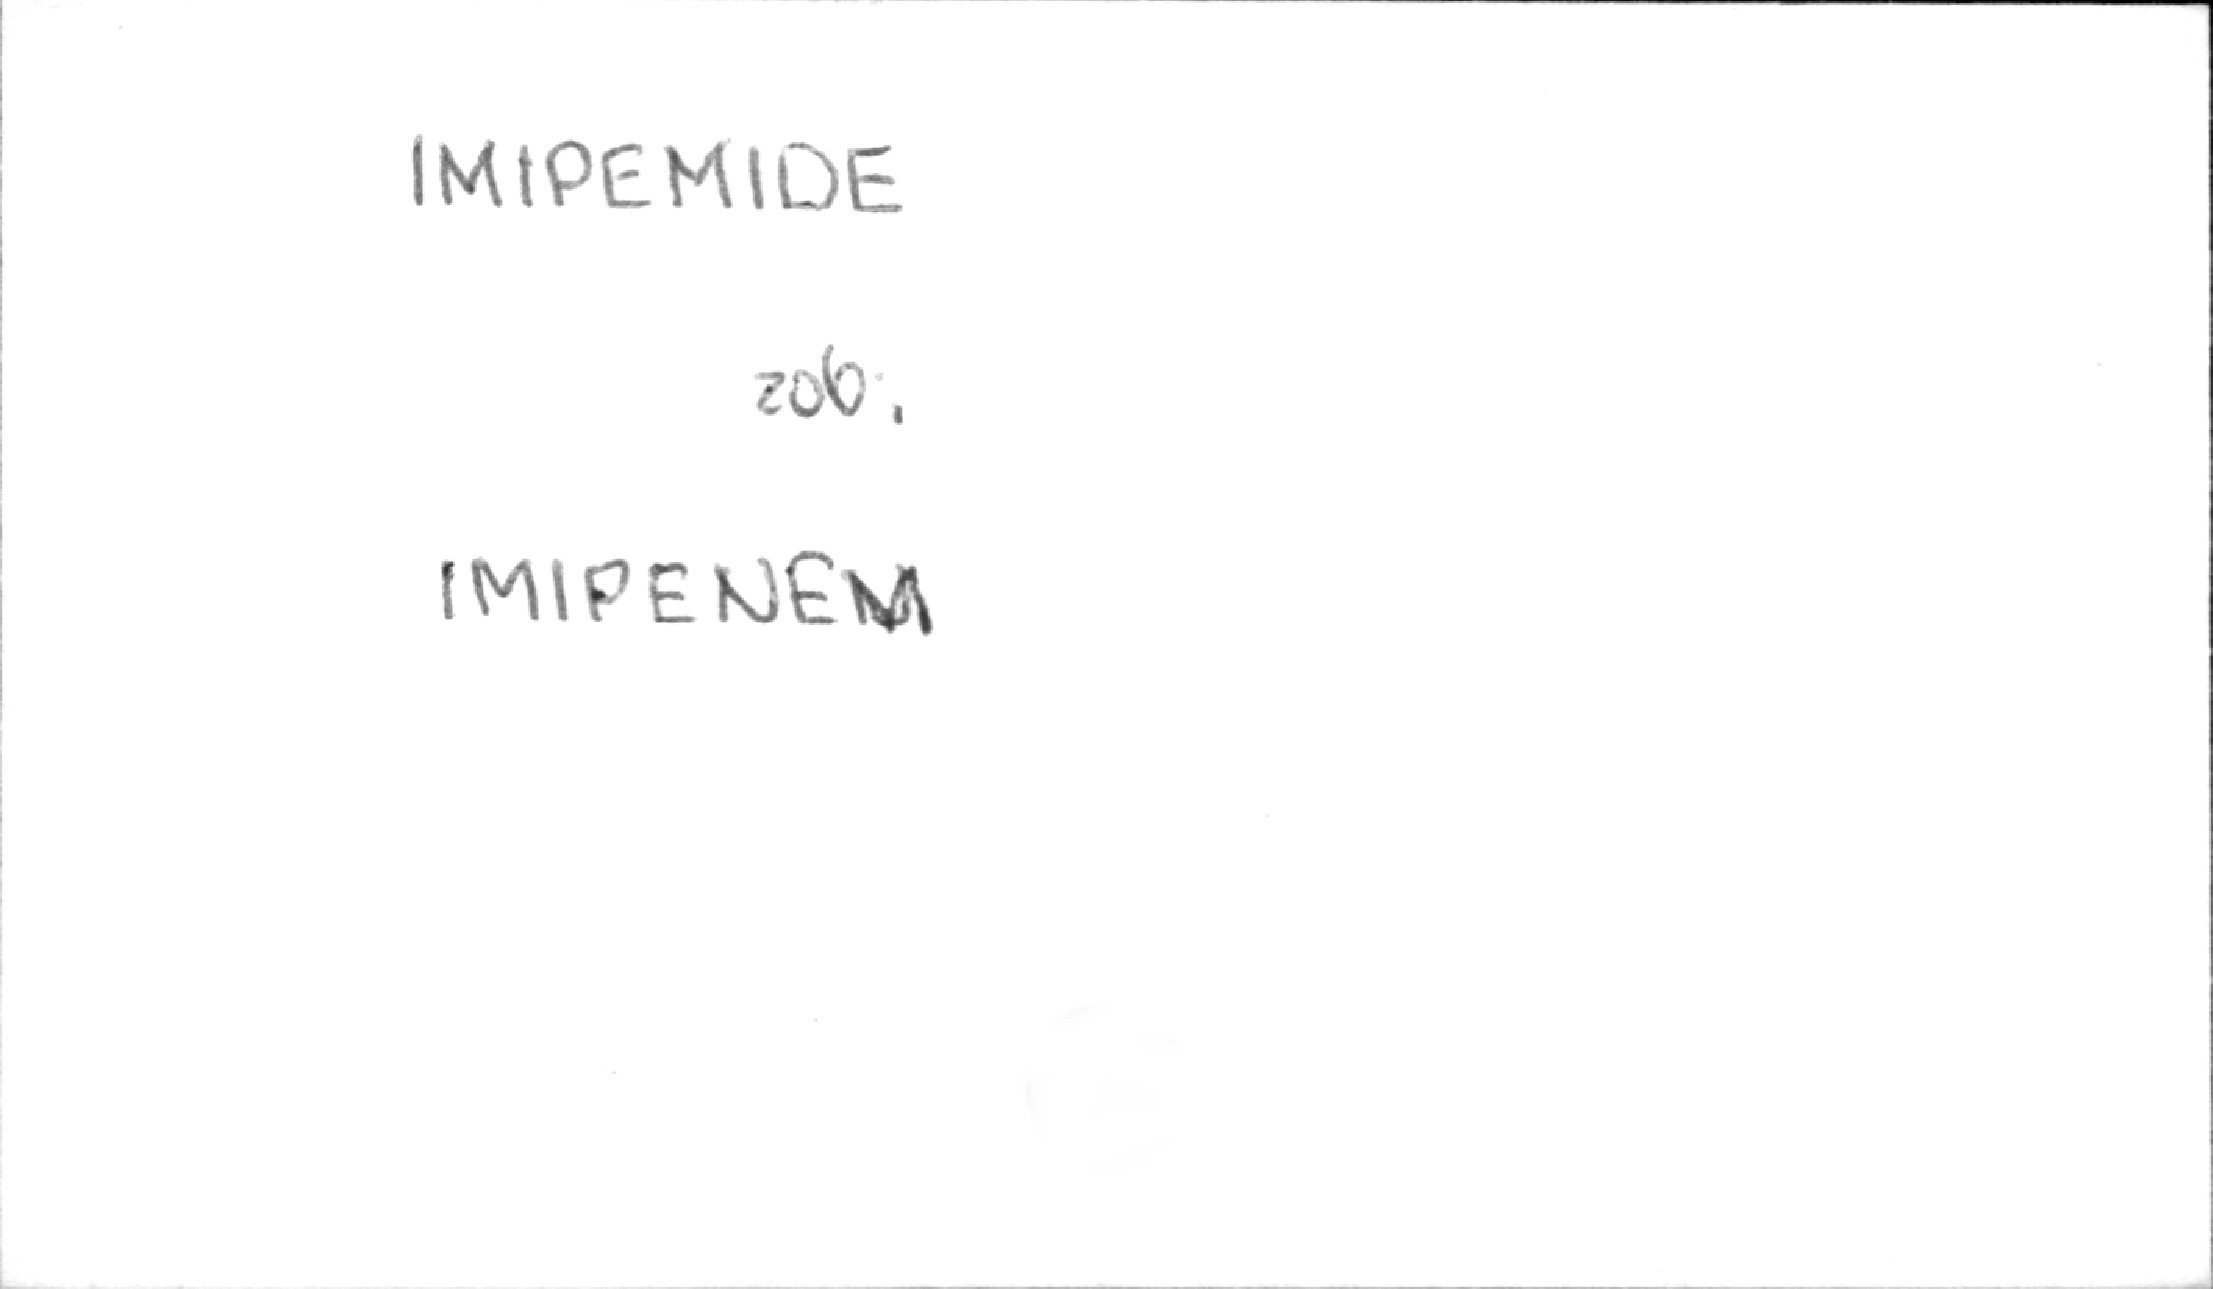 IMIPEMIDE
zob.
IMIPENEM